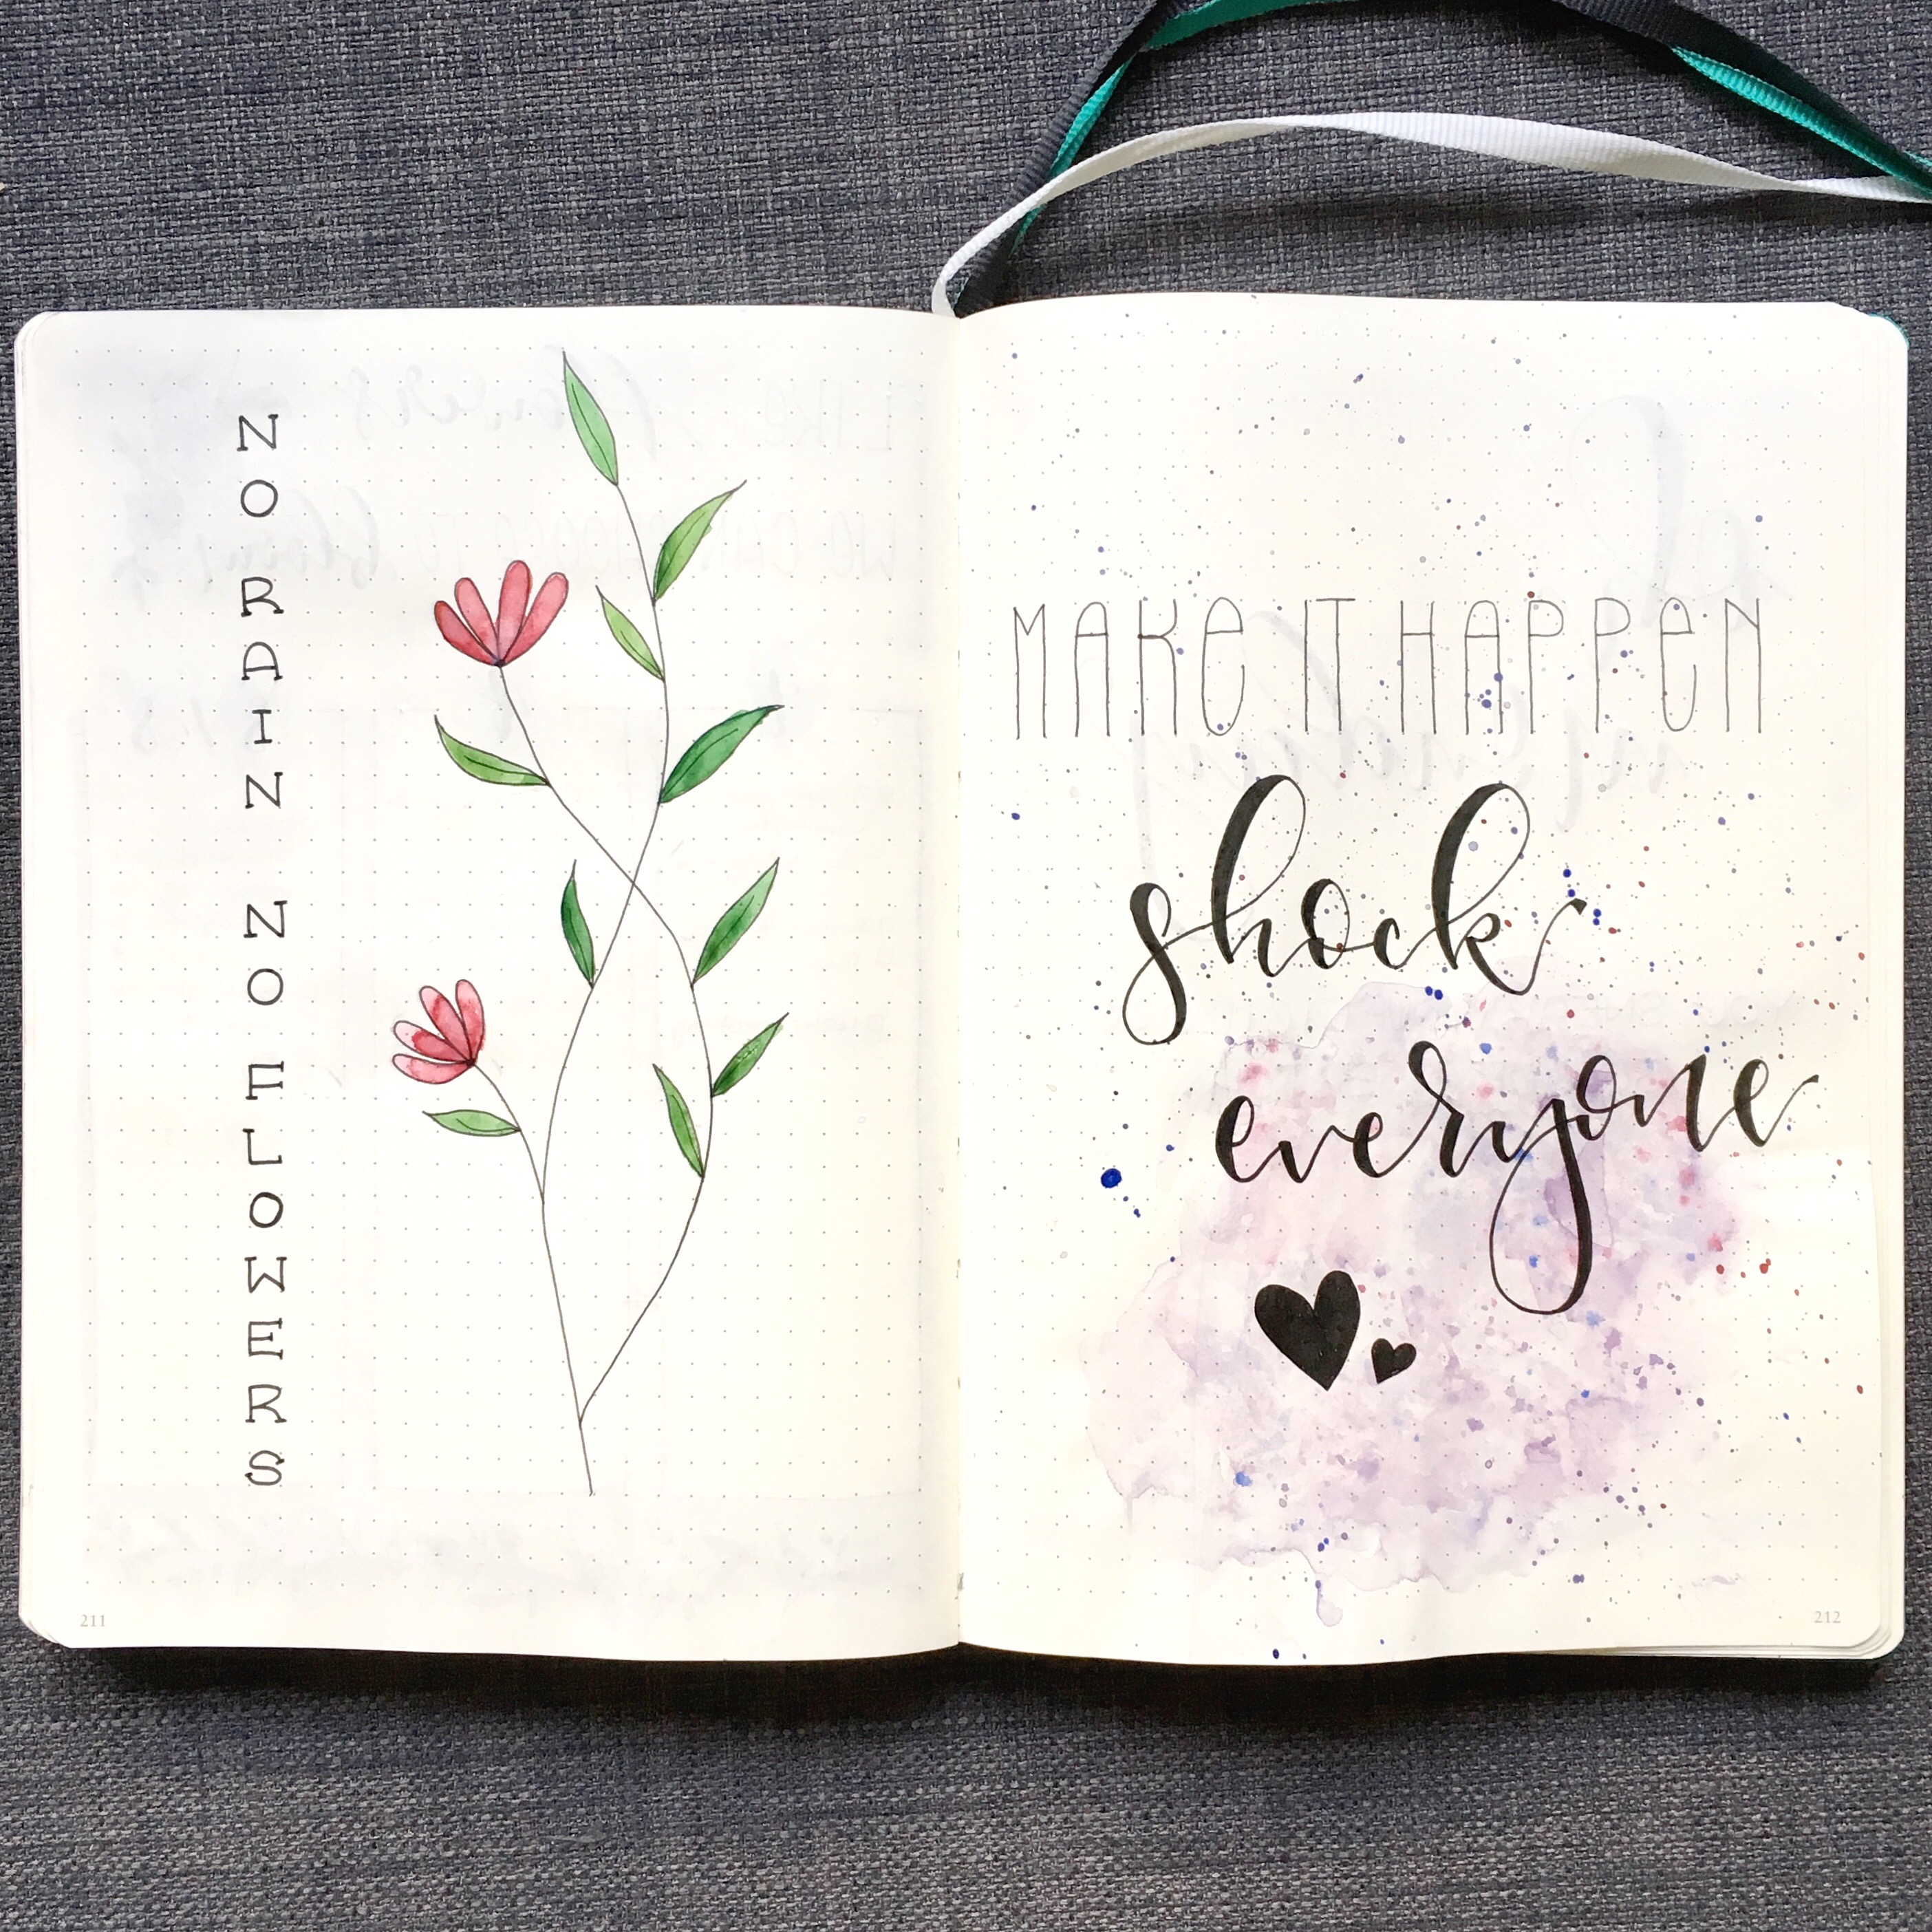 NO RAIN NO FLOWERS
211
MAKE IT HAPPEN
shock
everyone
212